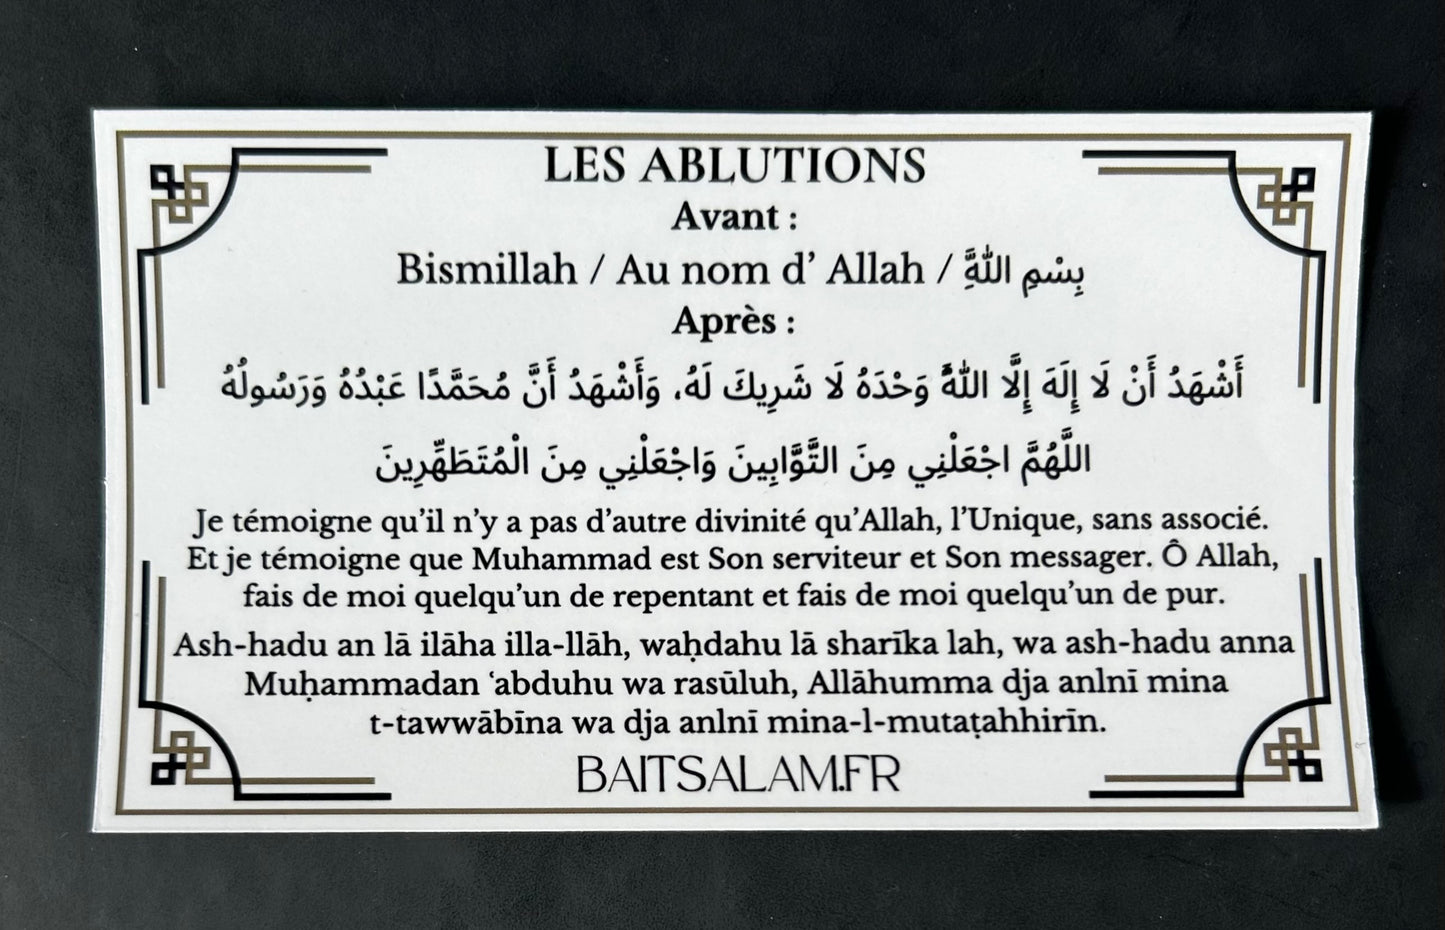 LES ABLUTIONS
Avant :
Bismillah / Au nom d’ Allah / بِسْمِ اللَّهِ
Après :
أَشْهَدُ أَنْ لَا إِلَهَ إِلَّا اللَّهُ وَحْدَهُ لَا شَرِيكَ لَهُ، وَأَشْهَدُ أَنَّ مُحَمَّدًا عَبْدُهُ وَرَسُولُهُ
اللَّهُمَّ اجْعَلْنِي مِنَ التَّوَّابِينَ وَاجْعَلْنِي مِنَ الْمُتَطَهِّرِينَ
Je témoigne qu’il n’y a pas d’autre divinité qu’Allah, l’Unique, sans associé.
Et je témoigne que Muhammad est Son serviteur et Son messager. Ô Allah,
fais de moi quelqu’un de repentant et fais de moi quelqu’un de pur.
Ash-hadu an lā ilāha illa-llāh, waḥdahu lā sharīka lah, wa ash-hadu anna
Muḥammadan ‘abduhu wa rasūluh, Allāhumma dja anlnī mina
t-tawwābīna wa dja anlnī mina-l-mutaṭahhirīn.
BAITSALAM.FR